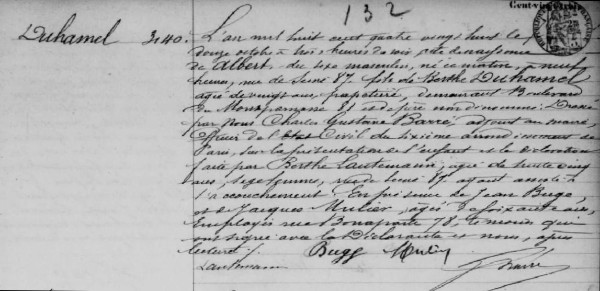 132
Duhamel 3140. L'an mil huit cent quatre vingt huit le
douze octobre à trois heures du soir, acte de naissance
de Albert du sexe masculin, né ce matin, à neuf
heures, rue de 87. fils de Berthe Duhamel
agée de vingt ans papetière, demeurant Boulevard
du Montparnasse 81 et de père non dénommé. Dressé
par Nous Charles Gustave Barré, adjoint au maire,
officier de l'état Civil du sixième arrondissement de
Paris, sur la présentation de l'enfant et la déclaration
faite par Berthe agée de trente cinq
ans, sage femme, rue de 87. ayant assisté à
l'accouchement. En présence de Jean
et de Jacques agés de
Employés rue Bonaparte 78, témoins qui
ont signé avec la Déclarante et nous, après
lecture./.